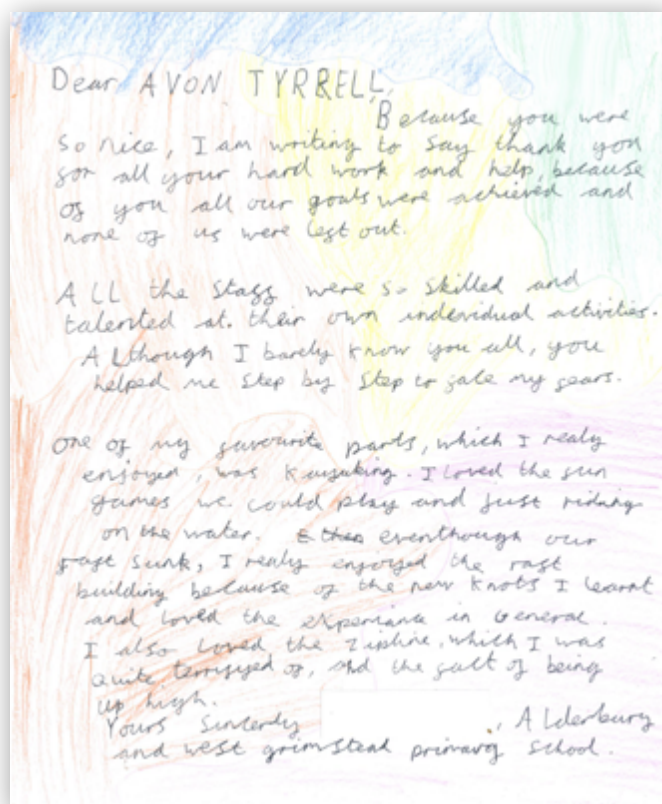 Dear AVON TYRRELL,
Because you were
so nice, I am writing to say thank you
for all your hard work and help, because
of you all our goals were achieved and
none of us were left out.
All the staff were so skilled and
talented at. their own indevidual activities.
Although I barely know you all, you
helped me step by step to fase my fears.
One of my favourite parts, which I realy
enjoyed, was Kayaking. I loved the fun
games we could play and just riding
on the water. eventhough our
raft sunk, I realy enjoyed the raft
building because of the new knots I learnt
and loved the experiance in General.
I also loved the zipline, which I was
quite terrifyed of, and the fact of being
up high.
Yours Sincerely , Alderbury
and west grimstead primary school.